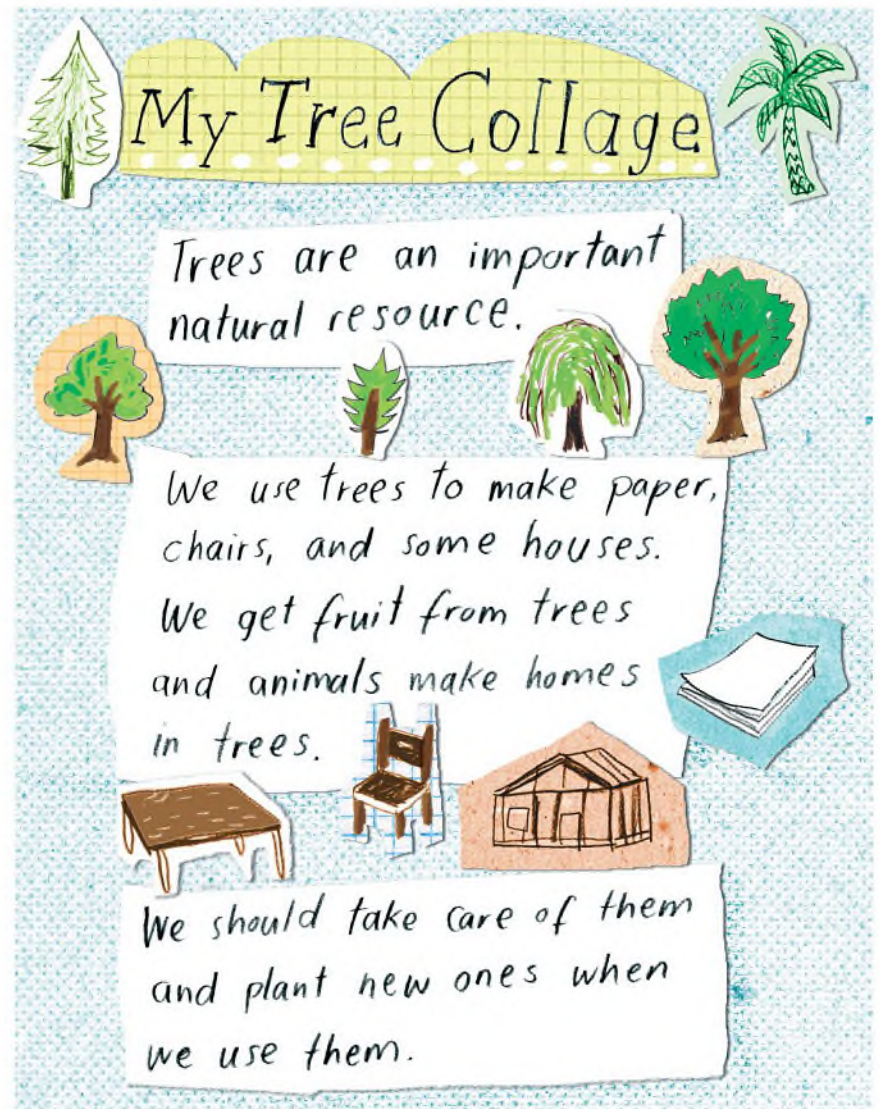 My Tree Collage
Trees are an important
natural resource.
We use trees to make paper,
chairs, and some houses.
We get fruit from trees
and animals make homes
in trees.
We should take care of them
and plant new ones when
we use them.